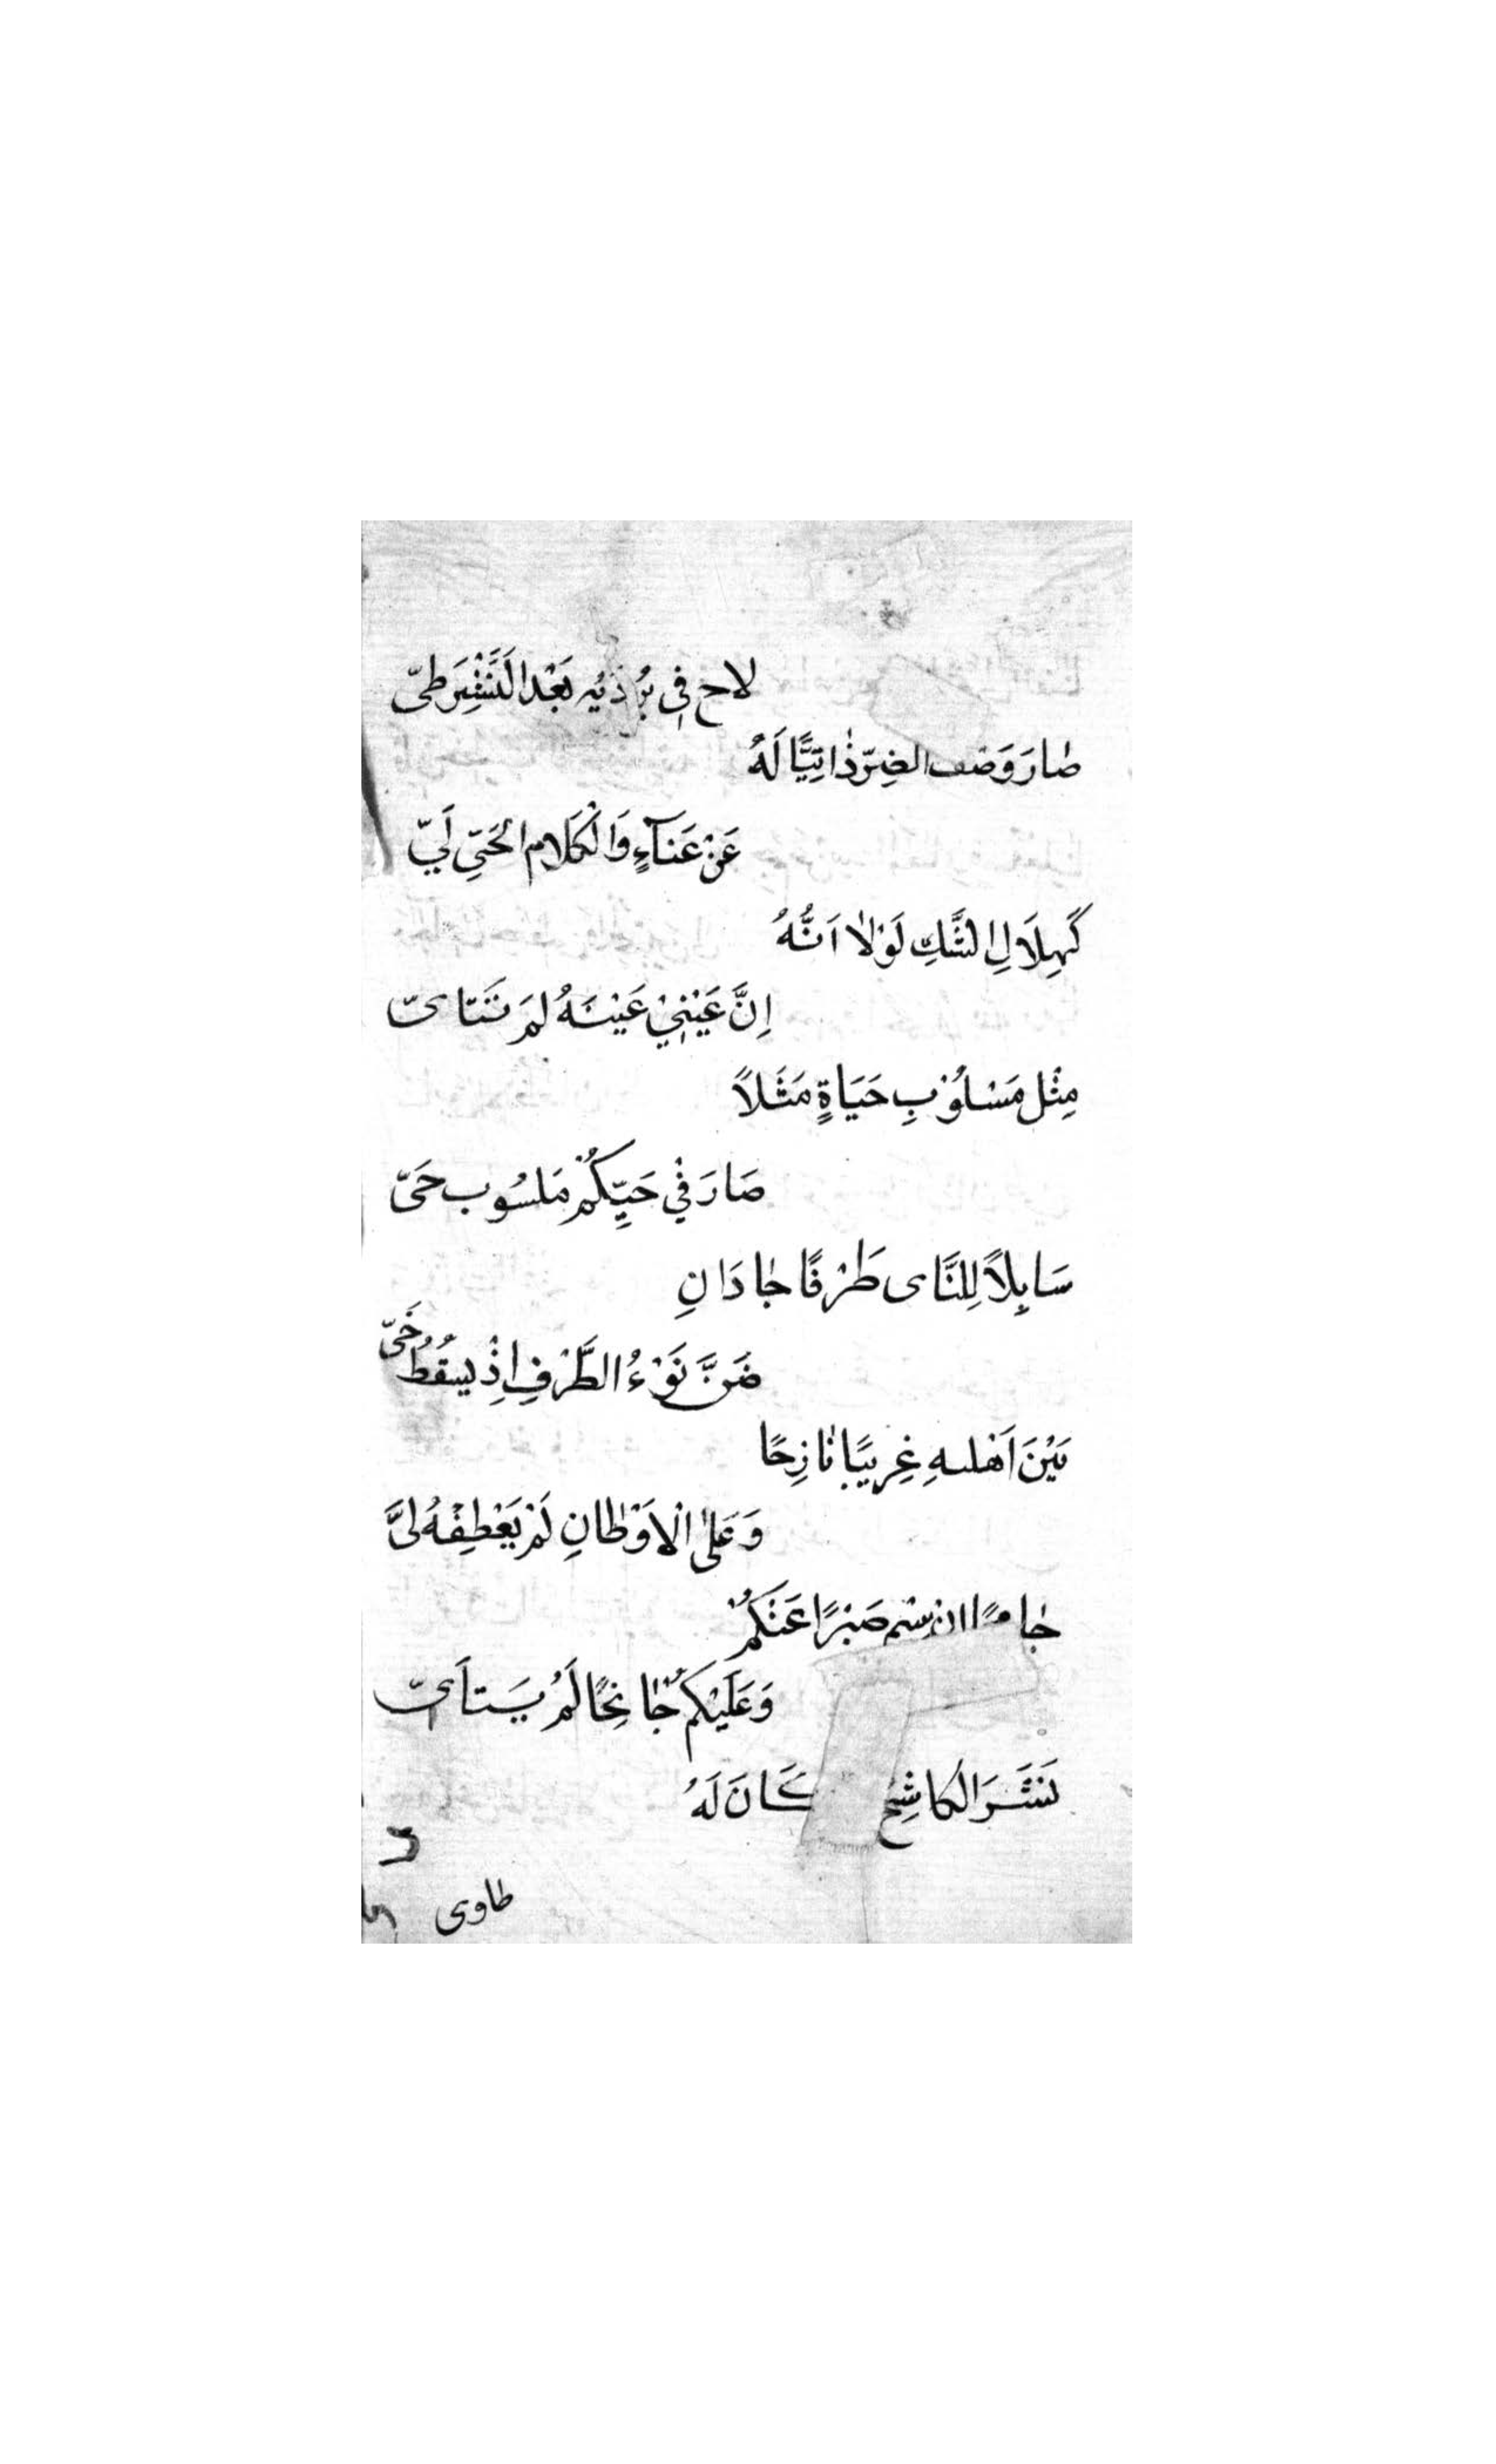 لاح فِي بُرْدَيْهِ بَعْدَ النَّشْرِ طَىّ
صَارَ وَصْف الضِرّ ذَاتِيًّا لَهُ
عَنْ عَنَآءٍ وَالْكَلَام الحَىّ لَيّ
كَهِلَالِ الشَّكِّ لَوْلَا اَنَّهُ
اِنَّ عَيْنِيْ عَيْنَهُ لَمْ تَتَاىّ
مِثْل مَسْلُوْبِ حَيَاةٍ مَثَلاً
صَارَ فِيْ حَيِّكُمْ مَلسُوب حَىّ
سَايِلاً لِلنَّاى طَرْفًا جَادَ انِ
ضَنَّ نَوْءُ الطَّرْفِ اِذْ يسقُطُ خَىّ
بَيْنَ اَهْلهِ غِريبًا نَازِحًا
وَعَلَى الْاَوْطَانِ لَمْ يَعْطِفْهُ لَىَّ
جَامِحًا ان سم صَبْرًا عَنْكُمْ
وَعَلَيْكُمْ جَانِحًا لَمْ يَتاَىّ
نَشَرَ الكَاشِحُ كَانَ لَهُ
طاوى